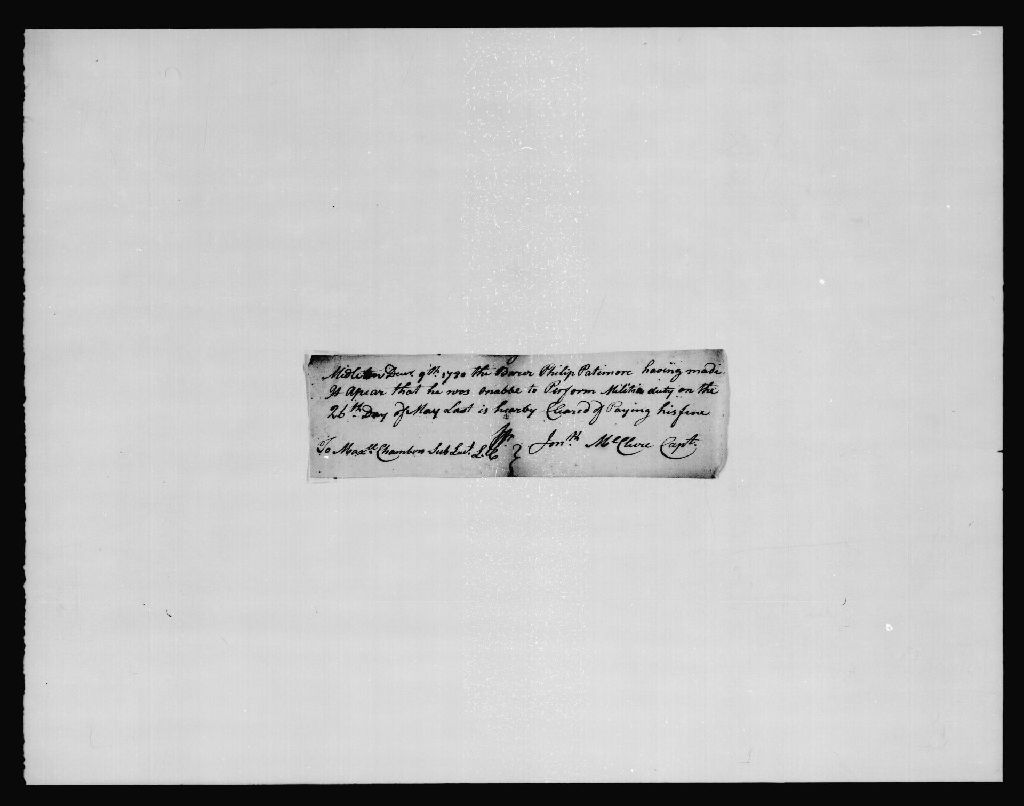 Midleton Decr 9th 1780 the Barer Philip Patimore having made
It apear that he was onable to Perform Militia duty on the
26th Day of May Last is hearby Cleared of Paying his fine
To Maxll Chambers Sub Lut. L.C } Jonth McClure Capt.